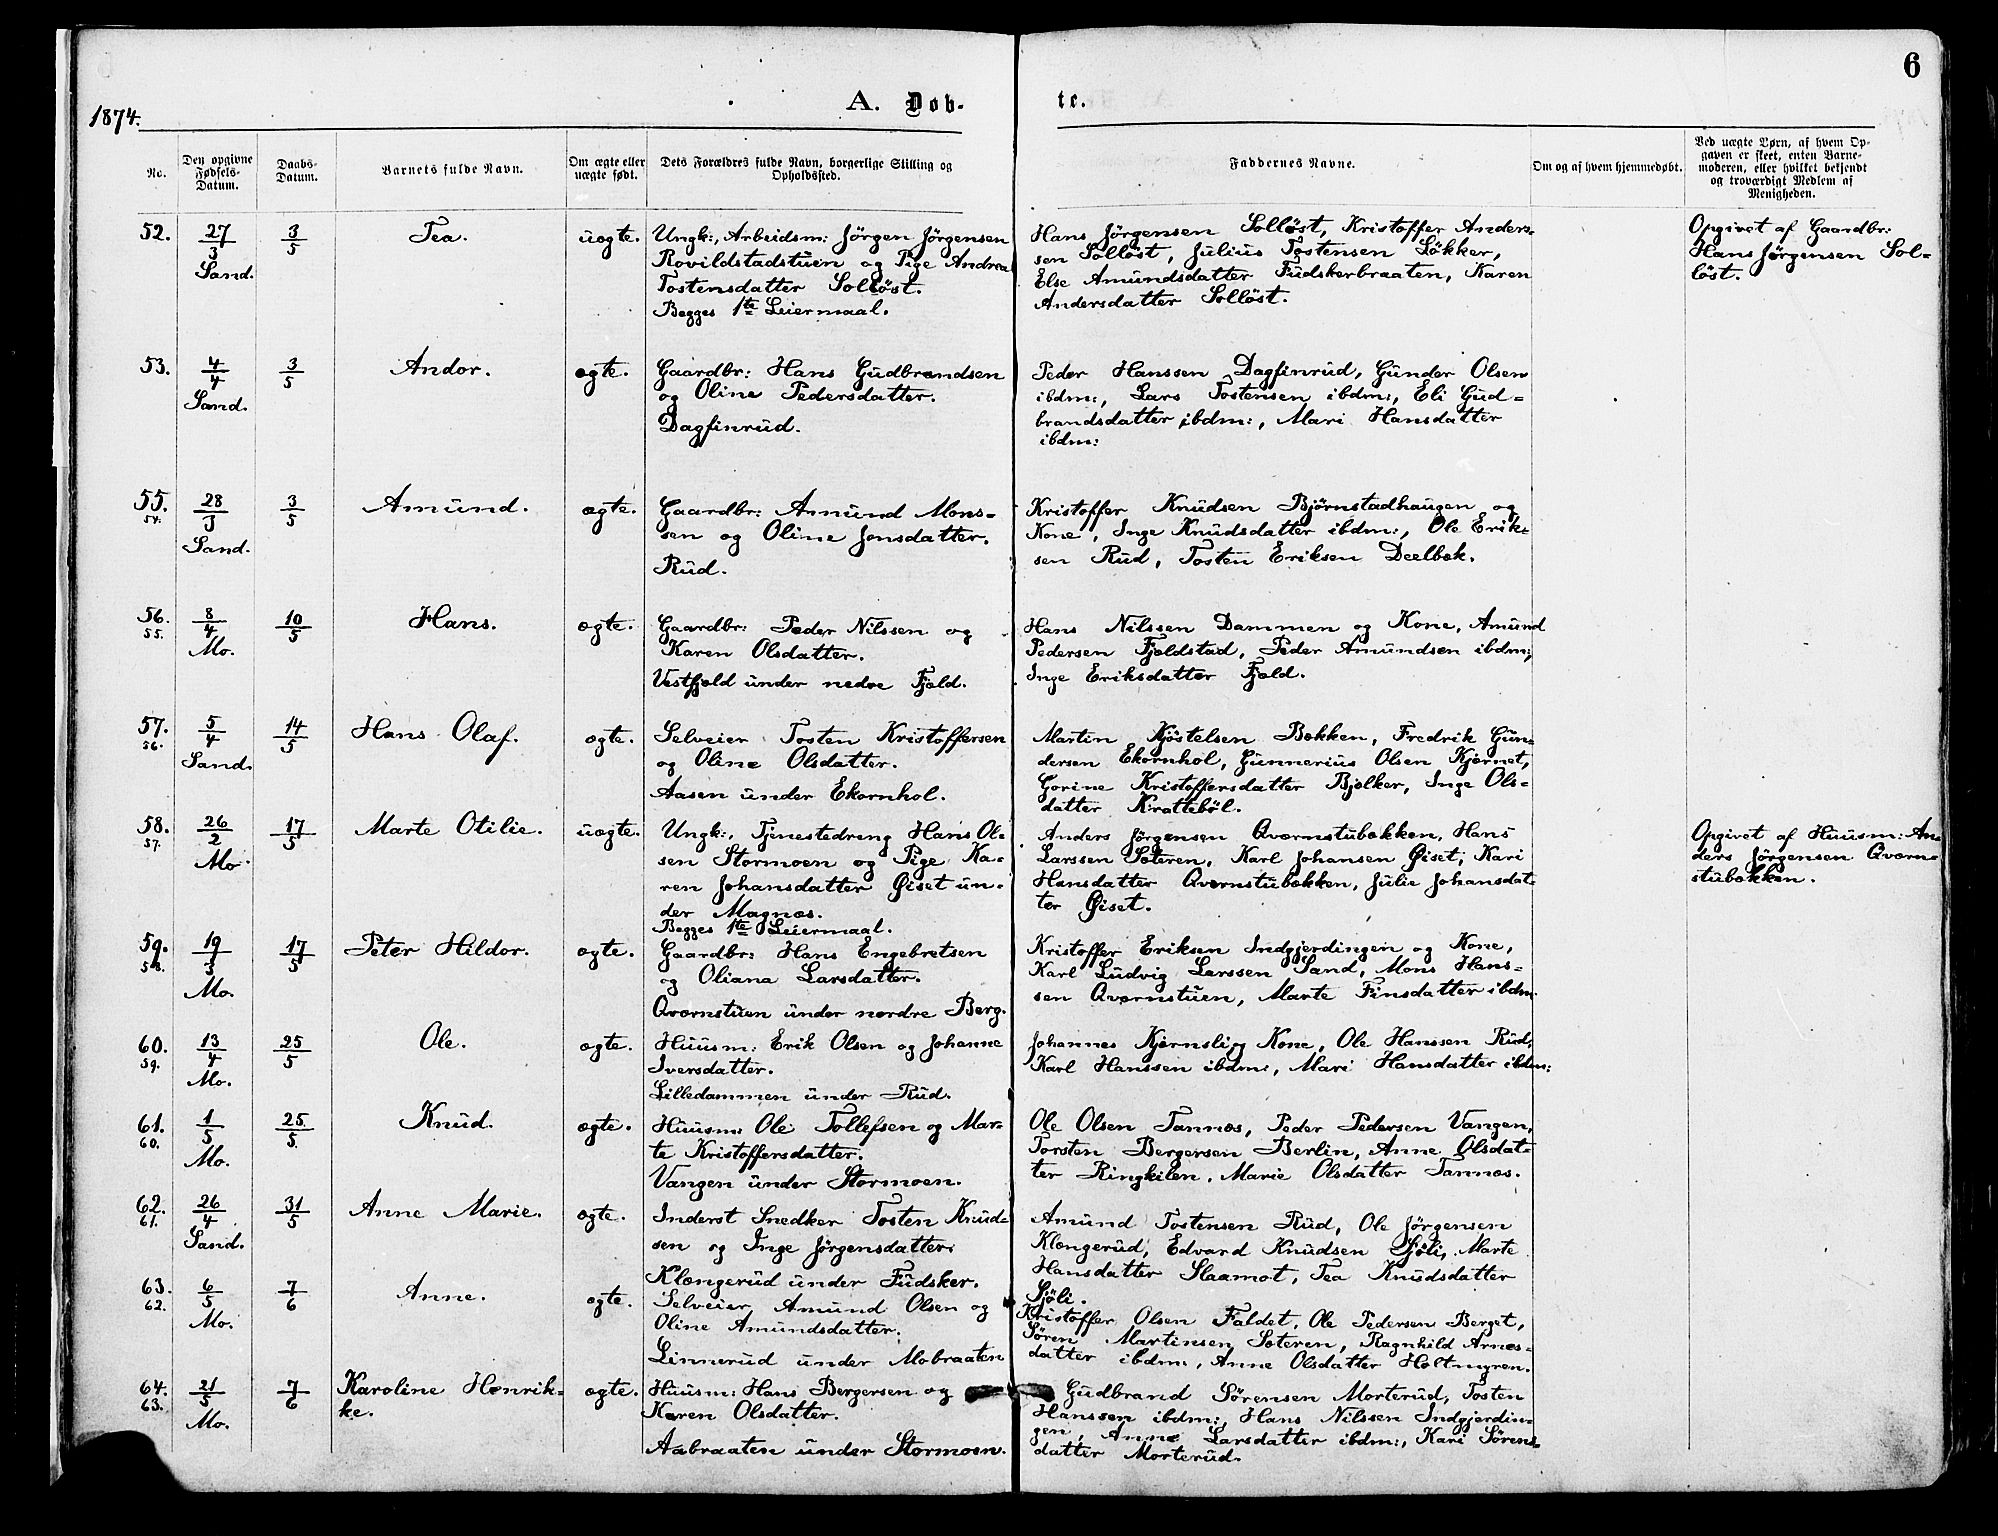 6
1874.
A. Døb-
te.
No.
Den opgivne
Fødsels-
Datum.
Daabs-
Datum.
Barnets fulde Navn.
Om ægte eller
uægte født.
Dets Forældres fulde Navn, borgerlige Stilling og
Opholdssted.
Faddernes Navne.
Om og af hvem hjemmedøbt.
Ved uægte Børn, af hvem Op-
gaven er skeet, enten Barne-
moderen, eller hvilket bekjendt
og troværdigt Medlem af
Menigheden.
52.
27/3
Sand.
3/5
Tea.
uægte.
Ungk:, Arbeidsm: Jørgen Jørgensen
Rovildstadstuen og Pige Andrea
Tostensdatter Solløst.
Begges 1te Leiermaal.
Hans Jørgensen Solløst, Kristoffer Ander-
sen Solløst, Julius Tostensen Løkker,
Else Amundsdatter Fudskerbraaten, Karen
Andersdatter Solløst.
Opgivet af Gaardbr:
Hans Jørgensen Sol-
løst.
53.
4/4
Sand.
3/5
Andor.
ægte.
Gaardbr: Hans Gudbrandsen
og Oline Pedersdatter.
Dagfinrud.
Peder Hanssen Dagfinrud, Gunder Olsen
ibdm:, Lars Tostensen ibdm:, Eli Gud-
brandsdatter ibdm:, Mari Hansdatter
ibdm:
55.
54.
28/3
Sand.
3/5
Amund.
ægte.
Gaardbr: Amund Mons-
sen og Oline Jonsdatter.
Rud.
Kristoffer Knudsen Bjørnstadhaugen og
Kone, Inge Knudsdatter ibdm:, Ole Erik-
sen Rud, Tosten Eriksen Deelbæk.
56.
55.
8/4
Mo.
10/5
Hans.
ægte.
Gaardbr: Peder Nilssen og
Karen Olsdatter.
Vestfjeld under nedre Fjeld.
Hans Nilssen Dammen og Kone, Amund
Pedersen Fjeldstad, Peder Amundsen ibdm:,
Inge Eriksdatter Fjeld.
57.
56.
5/4
Sand.
14/5
Hans Olaf.
ægte.
Selveier Tosten Kristoffersen
og Oline Olsdatter.
Aasen under Ekornhol.
Martin Kjøstelsen Bækken, Fredrik Gun-
dersen Ekornhol, Gunnerius Olsen Kjernet,
Gorine Kristoffersdatter Bjølker, Inge Ols-
datter Krattebøl.
58.
57.
26/2
Mo.
17/5
Marte Otilie.
uægte.
Ungk:, Tjenestedreng Hans Ol-
sen Stormoen og Pige Ka-
ren Johansdatter Øiset un-
der Magnæs.
Begges 1te Leiermaal.
Anders Jørgensen Qværnstubækken, Hans
Larssen Sæteren, Karl Johansen Øiset, Kari
Hansdatter Qværnstubækken, Julie Johansdat-
ter Øiset.
Opgivet af Huusm: An-
ders Jørgensen Qværn-
stubækken.
59.
58.
19/3
Mo.
17/5
Peter Hildor.
ægte.
Gaardbr: Hans Engebretsen
og Oliana Larsdatter.
Qværnstuen under nordre Berg.
Kristoffer Eriksen Indgjerdingen og Kone,
Karl Ludvig Larssen Sand, Mons Hans-
sen Qværnstuen, Marte Finsdatter ibdm.
60.
59.
13/4
Mo.
25/5
Ole.
ægte.
Huusm: Erik Olsen og Johanne
Iversdatter.
Lilledammen under Rud.
Johannes Kjernsli og Kone, Ole Hanssen Rud,
Karl Hanssen ibdm:, Mari Hansdatter ibdm:
61.
60.
1/5
Mo.
25/5
Knud.
ægte.
Huusm: Ole Tollefsen og Mar-
te Kristoffersdatter.
Vangen under Stormoen.
Ole Olsen Tannæs, Peder Pedersen Vangen,
Torsten Bergersen Berlin, Anne Olsdat-
ter Ringkilen, Marie Olsdatter Tannæs.
62.
61.
26/4
Sand.
31/5
Anne Marie.
ægte.
Inderst Snedker Tosten Knud-
sen og Inge Jørgensdatter.
Klængerud under Fudsker.
Amund Tostensen Rud, Ole Jørgensen
Klængerud, Edvard Knudsen Sjøli, Marte
Hansdatter Slaamot, Tea Knudsdatter
Sjøli.
63.
62.
6/5
Mo.
7/6
Anne.
ægte.
Selveier Amund Olsen og
Oline Amundsdatter.
Linnerud under Mobraaten
Kristoffer Olsen Faldet, Ole Pedersen Berget,
Søren Martinsen Sæteren, Ragnhild Arnes-
datter ibdm:, Anne Olsdatter Holtmyren.
64.
63.
21/5
Mo.
7/6
Karoline Henrik-
ke.
ægte.
Huusm: Hans Bergersen og
Karen Olsdatter.
Aabraaten under Stormoen.
Gudbrand Sørensen Morterud, Tosten
Hanssen ibdm:, Hans Nilssen Indgjerdin-
gen, Anne Larsdatter ibdm:, Kari Sørens-
datter Morterud.